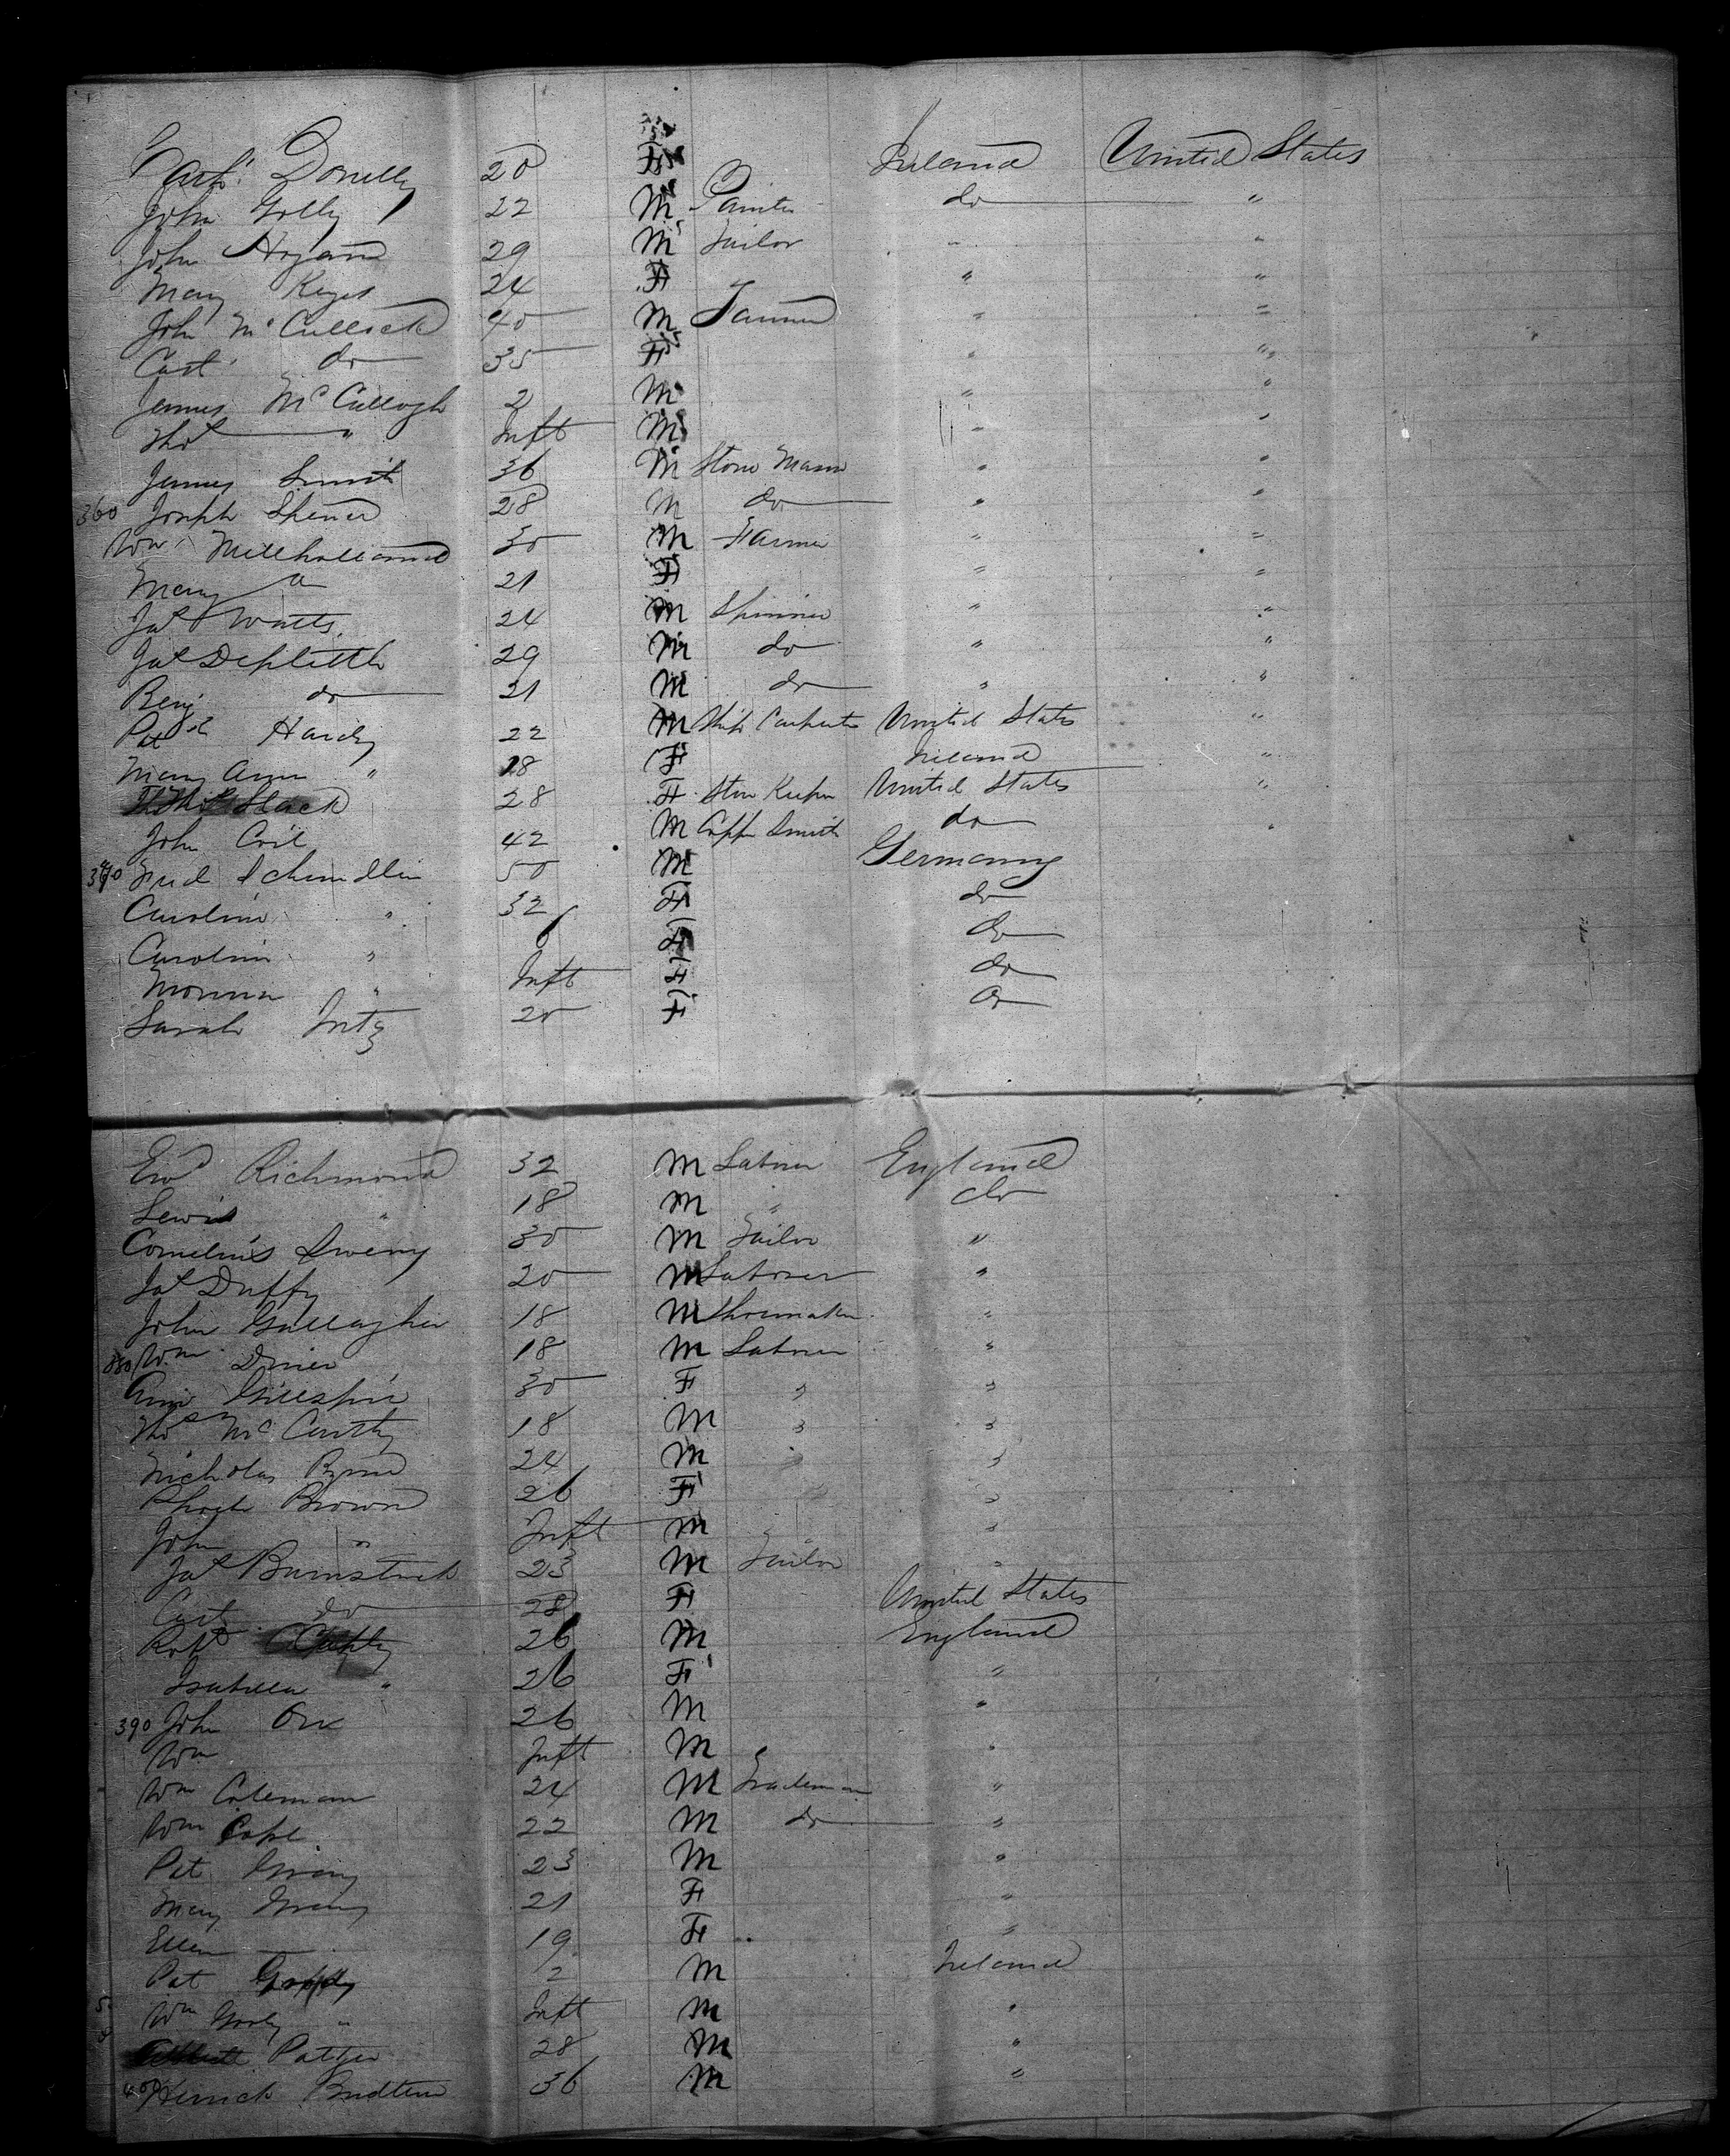 Cath. Donelly 20 F Ireland United States
John Golly 22 M Painter do "
John Hogan 29 M Tailor " "
Mary Keyes 24 F " "
John McCullock 40 M Farmer " "
Cath do 35 F " "
James McCullogh 2 M " "
Thos " Inft M " "
James Smith 36 M Stone Mason " "
360 Joseph Spencer 28 M do " "
Wm Millholland 30 M Farmer " "
Mary " 21 F " "
Jas Watts 24 M Spinner " "
Jas 29 M do " "
Benj do 21 M do " "
Patk Hardy 22 M Ship Carpenter United States "
Mary Ann " 18 F Ireland "
Slack 28 F Store Keeper United States "
John Coil 42 M Copper Smith do "
370 Fred Schindlin 50 M Germany
Caroline " 32 F do
Caroline " 6 F do
" Inft F do
Sarah 20 F do
Ewd Richmond 32 M Laborer England
Lewis " 18 M " do
Cornelius Sweeny 30 M Tailor "
Jas Duffy 20 M Laborer "
John Gallagher 18 M Shoemaker "
380 Wm 18 M Laborer "
Ann Gillespie 30 F " "
Thos McCarthy 18 M " "
Nicholas Byrne 24 M " "
Phoebe Brown 26 F "
John " Inft M "
Jas 23 M Tailor "
Cath do 28 F United States
Robt 26 M England
Isabella " 26 F "
390 John Orr 26 M "
Wm Inft M "
Wm Coleman 24 M Tradesman "
Wm Cope 22 M do "
Pat 23 M "
Mary 21 F "
Ellen 19 F "
Pat 2 M Ireland
Wm " Inft M "
28 M "
400 36 M "